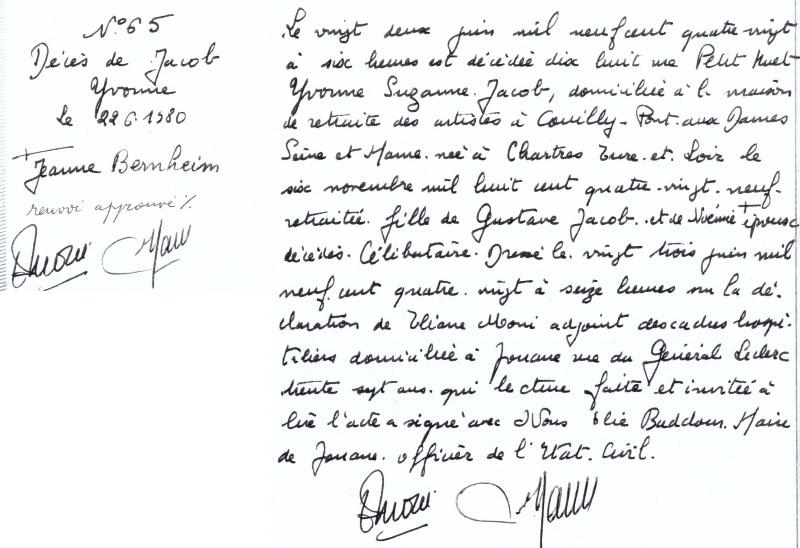 N° 65
Décès de Jacob
Yvonne
Le 22 6. 1980
+ Jeanne Bernheim
renvoi approuvé %
Le vingt deux juin mil neuf cent quatre-vingt
à six heures est décédée dix huit rue Petit Huet
Yvonne Suzanne Jacob, domiciliée à la maison
de retraite des artistes à Couilly-Pont.aux Dames
Seine et Marne. née à Chartres Eure. et. Loir le
six novembre mil huit cent quatre-vingt. neuf.
retraitée. fille de Gustave Jacob. et de Noémie + épouse
décédés. Célibataire. Dressé le. vingt trois juin mil
neuf. cent quatre. vingt à seize heures sur la dé-
claration de Eliane Moni adjoint des cadres hospi-
taliers domiciliée à Jouarre rue du Général Leclerc
trente sept ans. qui lecture faite et invitée à
lire l'acte a signé avec Nous Elie Baddour. Maire
de Jouarre. officier de l'Etat. Civil.